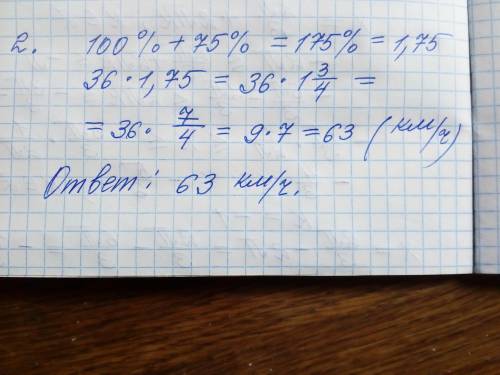 2. 100% + 75% = 175% = 1,75
36 · 1,75 = 36 · 1 3/4 =
= 36 · 7/4 = 9 · 7 = 63 (км/ч)
Ответ: 63 км/ч.